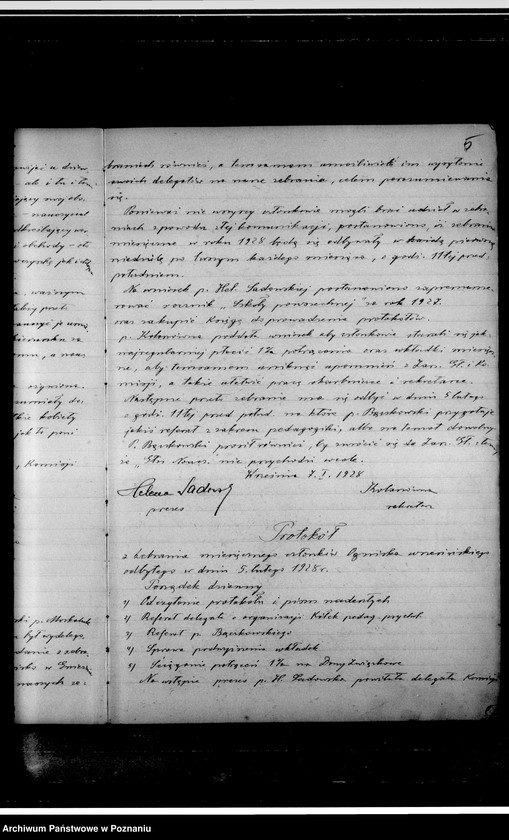 5
braniach również, a temsamem umożliwić im wysyłanie
swoich delegatów na nasze zebrania, celem porozumiewania
się.
Ponieważ nie wszyscy członkowie mogli brać udział w zebra-
niach z powodu złej komunikacji, postanowiono, iż zebrania
miesięczne w roku 1928 będą się odbywały w każdą pierwszą
niedzielę po 1wszym każdego miesiąca, o godz. 11tej przed
południem.
Na wniosek p. Hel. Sadowskiej postanowiono zaprenume-
rować rocznik "Szkoły powszechnej" za rok 1927.
oraz zakupić Księgę do prowadzenia protokołów.
p. Kolanówna poddała wniosek aby członkowie starali się jak-
najregularniej płacić 1% potrącenia oraz wkładki miesięcz-
ne, aby temsamem uniknąć upomnień z Zarz. Gł. i Ko-
misji, a także ułatwić pracę skarbnice i sekretarce.
Następne zebranie ma się odbyć w dniu 5 lutego
o godz. 11tej przed połud. na które p. Bączkowski przygotuje
jakiś referat z zakresu pedagogiki, albo na temat dowolny.
P. Bączkowski prosił również, by zwrócić się do Zarz. Gł.
że "Głos Naucz." nie przychodzi wcale.
Września 7. I. 1928
Helena Sadows
Kolanówna
prezes
Protokół
z zebrania miesięcznego członków Ogniska wrzesińskiego
odbytego w dniu 5 lutego 1928 r.
Porządek dzienny
1) Odczytanie protokołu i pism nadesłanych
2) Referat delegata o organizacji Kółek pedag. psychol.
3) Referat p. Bączkowskiego
4) Sprawa podwyższenia wkładek
5) Ściąganie potrąceń 1% na Domy Związkowe
Na wstępie prezes p. H. Sadowska powitała delegata Komisji
Archiwum Państwowe w Poznaniu